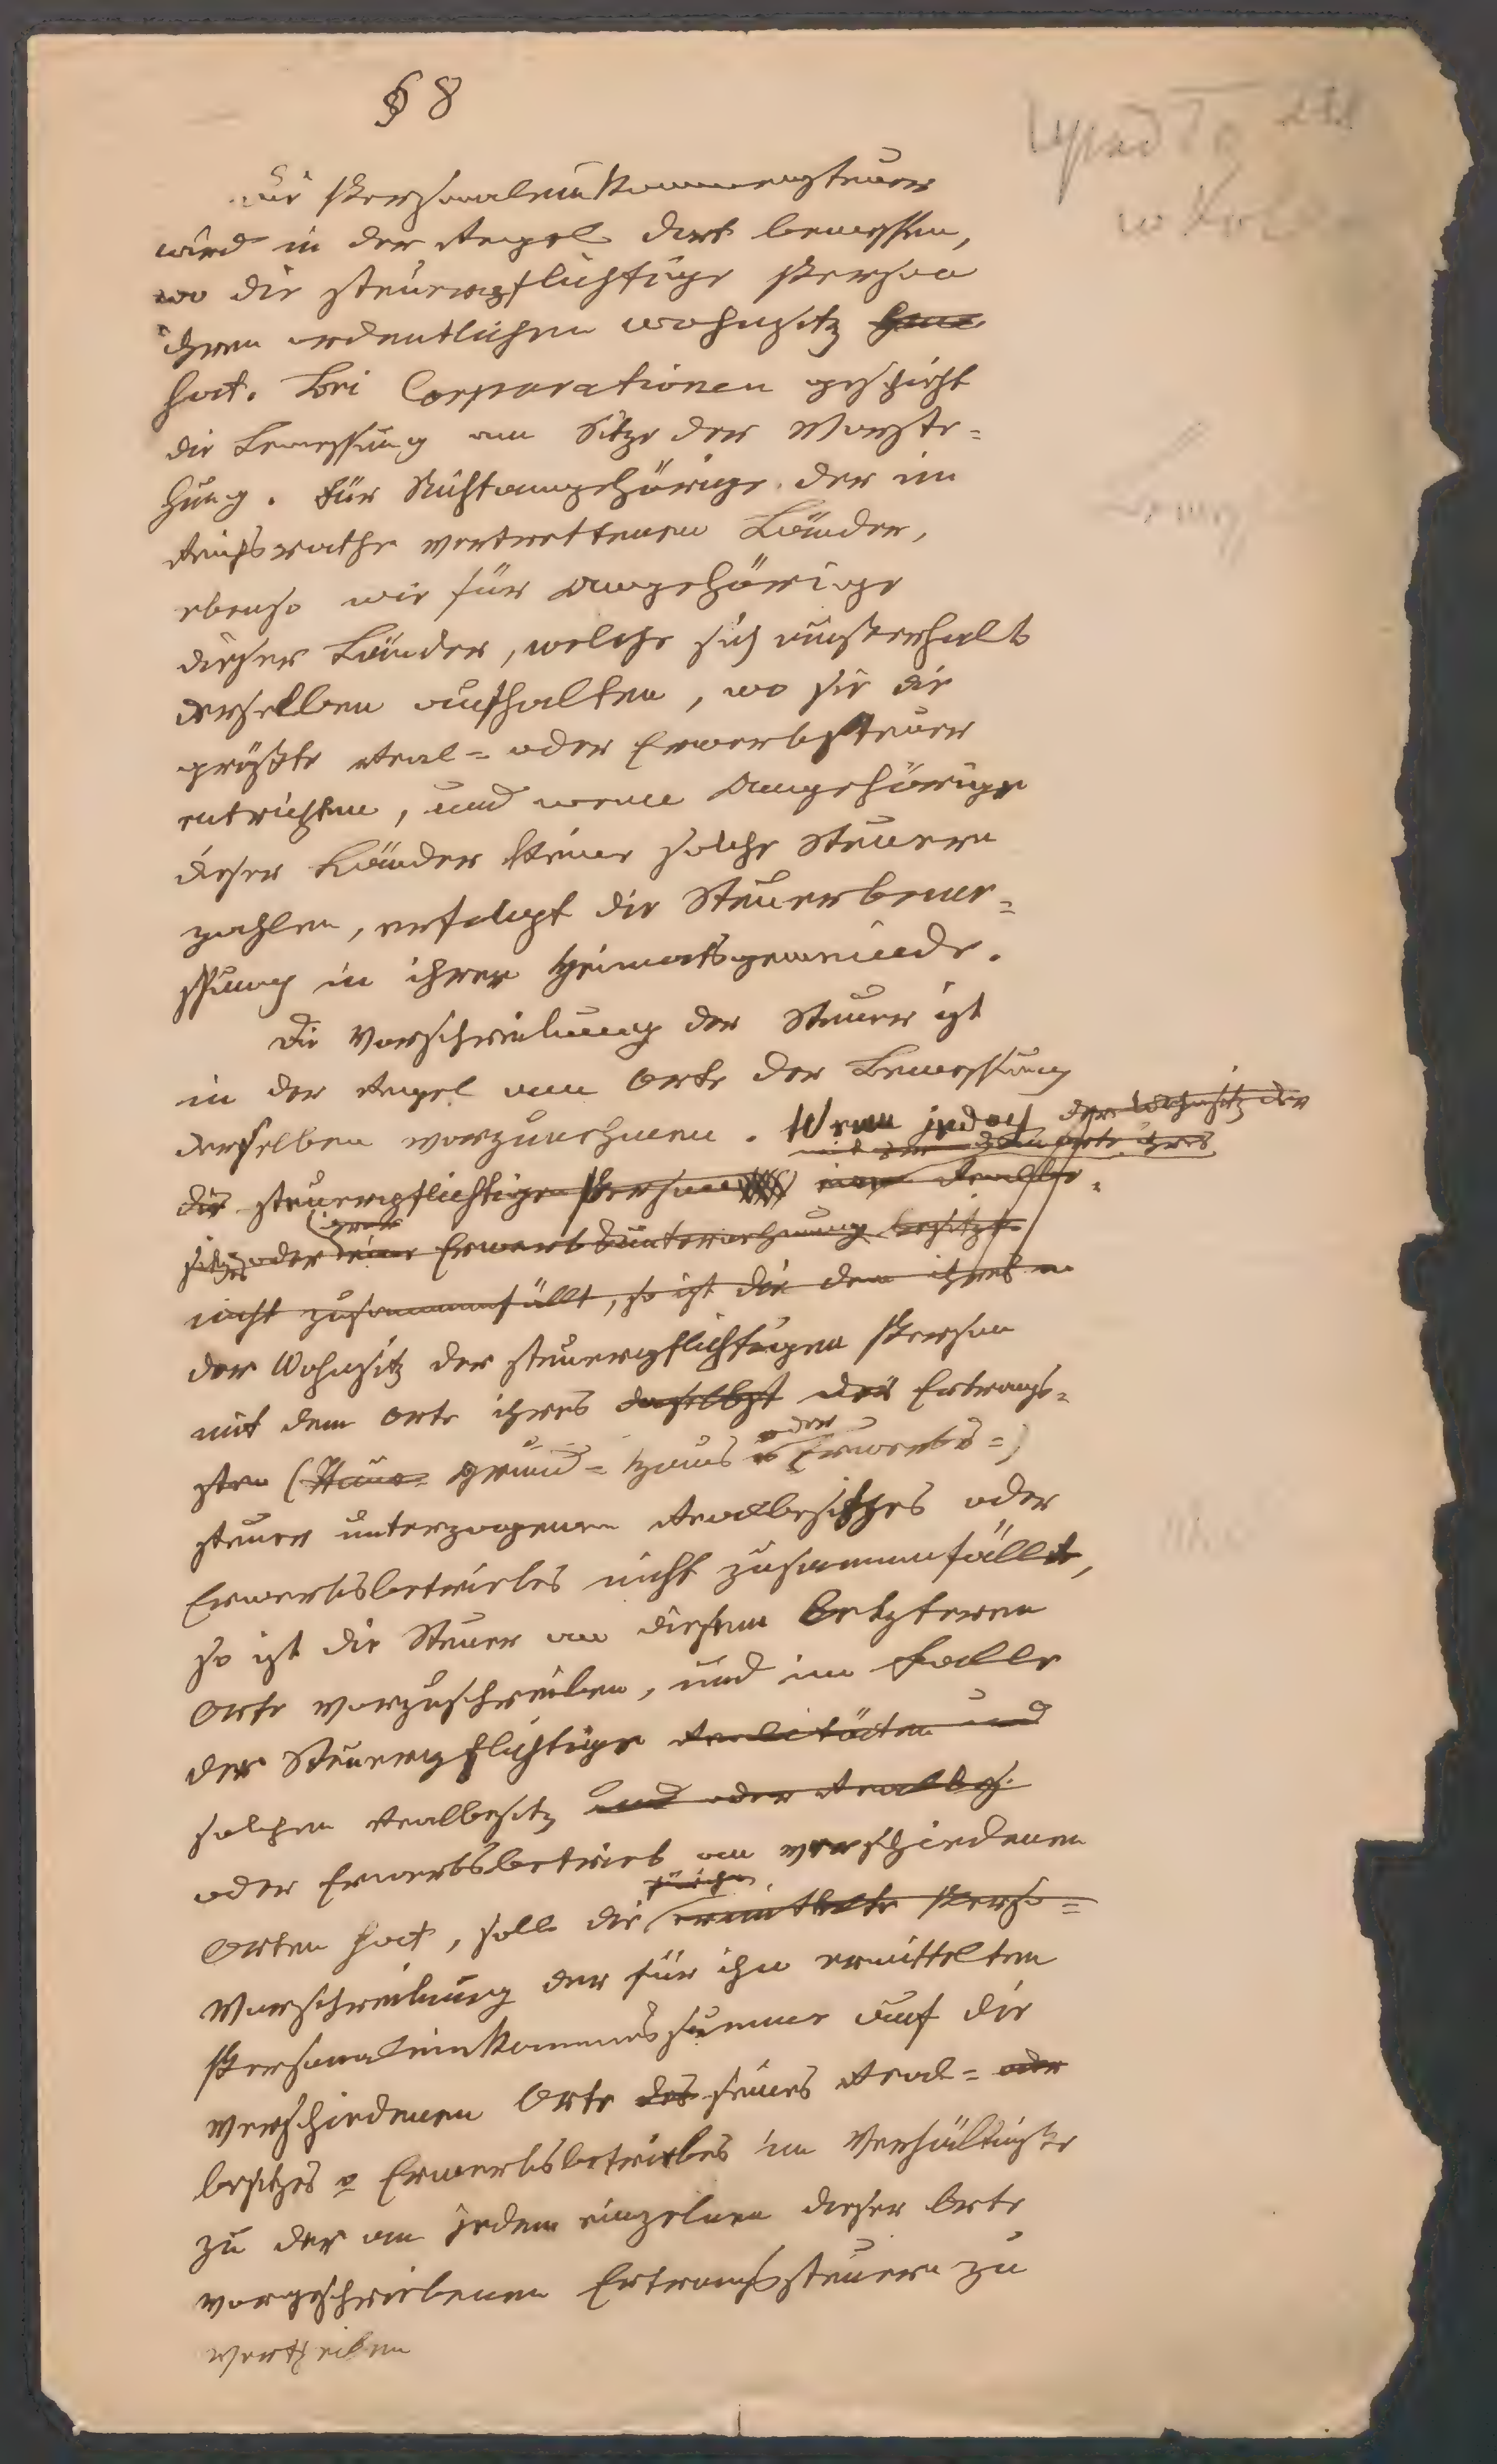 § 8
Die Personaleinkommensteuer
wird in der Regel dort bemessen,
wo die steuerpflichtige Person
ihren ordentlichen Wohnsitz
hat. Bei Corporationen geschieht
die Bemessung am Sitze der Vorste=
hung. Für Nichtangehörige der im
Reichsrathe vertrettenen Länder,
ebenso wie für Angehörige
dieser Länder, welche sich außerhalb
derselben aufhalten, wo sie die
größte Real= oder Erwerbsteuer
entrichten, und wenn Angehörige
dieser Länder keine solche Steuern
zahlen, erfolgt die Steuerbeme=
ssung in ihrer Heimatsgemeinde.
Die Vorschreibung der Steuer ist
in der Regel am Orte der Bemessung
derselben vorzunehmen. Wenn jedoch der Wohnsitz der
mit dem Orte ihres
die steuerpflichtige Person einen Realbe=
sitzes oder eine Erwerbsunternehmung besitzt
nicht zusammenfällt, so ist die dem ihres
der Wohnsitz der steuerpflichtigen Person
mit dem Orte ihres daselbst der Ertrags=
sten (Haus= Grund= Haus oder Erwerbs=)
steuer unterzogenen Realbesitzes oder
Erwerbsbetriebes nicht zusammenfällt,
so ist die Steuer an diesem letzteren
Orte vorzuschreiben, und im Falle
der Steuerpflichtige Realitäten und
solchen Realbesitz und oder Realbes.
oder Erwerbsbetrieb an verschiedenen
Orten hat, soll die ermittelte Perso=
Vorschreibung der für ihn ermittelten
Personaleinkommenssumme auf die
verschiedenen Orte des seines Real= oder
besitzes o Erwerbsbetriebes im Verhältnisse
zu der an jedem einzelnen dieser Orte
vorgeschriebenen Ertragssteuern zu
vertheilen